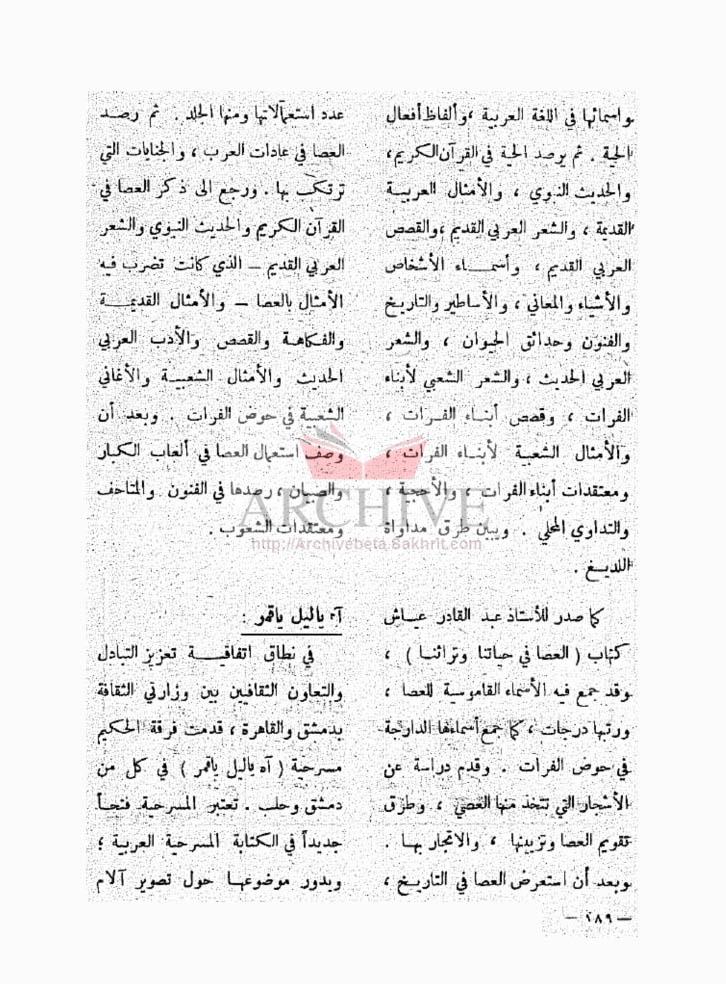 واسمائها في اللغة العربية ، وألفاظ أفعال
الحية . ثم يرصد الحية في القرآن الكريم ،
والحديث النبوي ، والأمثال العربية
القديمة ، والشعر العربي القديم ، والقصص
العربي القديم ، وأسماء الأشخاص
والأشياء والمعاني ، والأساطير والتاريخ
والفنون وحدائق الحيوان ، والشعر
العربي الحديث ، والشعر الشعبي لأبناء
الفرات ، وقصص أبناء الفرات ،
والأمثال الشعبية لأبناء الفرات ،
ومعتقدات أبناء الفرات ، والأحجية ،
والتداوي المحلي . ويبين طرق مداواة
اللديغ .
كما صدر للأستاذ عبد القادر عياش
كتاب ( العصا في حياتنا وتراثنا ) ،
وقد جمع فيه الأسماء القاموسية للعصا ،
ورتبها درجات ، كما جمع أسماءها الدارجة
في حوض الفرات . وقدم دراسة عن
الأشجار التي تتخذ منها العصي ، وطرق
تقويم العصا وتزيينها ، والاتجار بها .
وبعد أن استعرض العصا في التاريخ ،
عدد استعمالاتها ومنها الجلد . ثم رصد
العصا في عادات العرب ، والجنايات التي
ترتكب بها . ورجع الى ذكر العصا في
القرآن الكريم والحديث النبوي والشعر
العربي القديم – الذي كانت تضرب فيه
الأمثال بالعصا – والأمثال القديمة
والفكاهة والقصص والأدب العربي
الحديث والأمثال الشعبية والأغاني
الشعبية في حوض الفرات . وبعد أن
وصف استعمال العصا في ألعاب الكبار
والصبيان ، رصدها في الفنون والمتاحف
ومعتقدات الشعوب .
آه ياليل ياقمر :
في نطاق اتفاقية تعزيز التبادل
والتعاون الثقافيين بين وزارتي الثقافة
بدمشق والقاهرة ، قدمت فرقة الحكيم
مسرحية ( آه ياليل ياقمر ) في كل من
دمشق وحلب . تعتبر المسرحية فتحاً
جديداً في الكتابة المسرحية العربية ؛
ويدور موضوعها حول تصوير آلام
– ٢٨٩ –
ARCHIVE
http://Archivebeta.Sakhrit.com